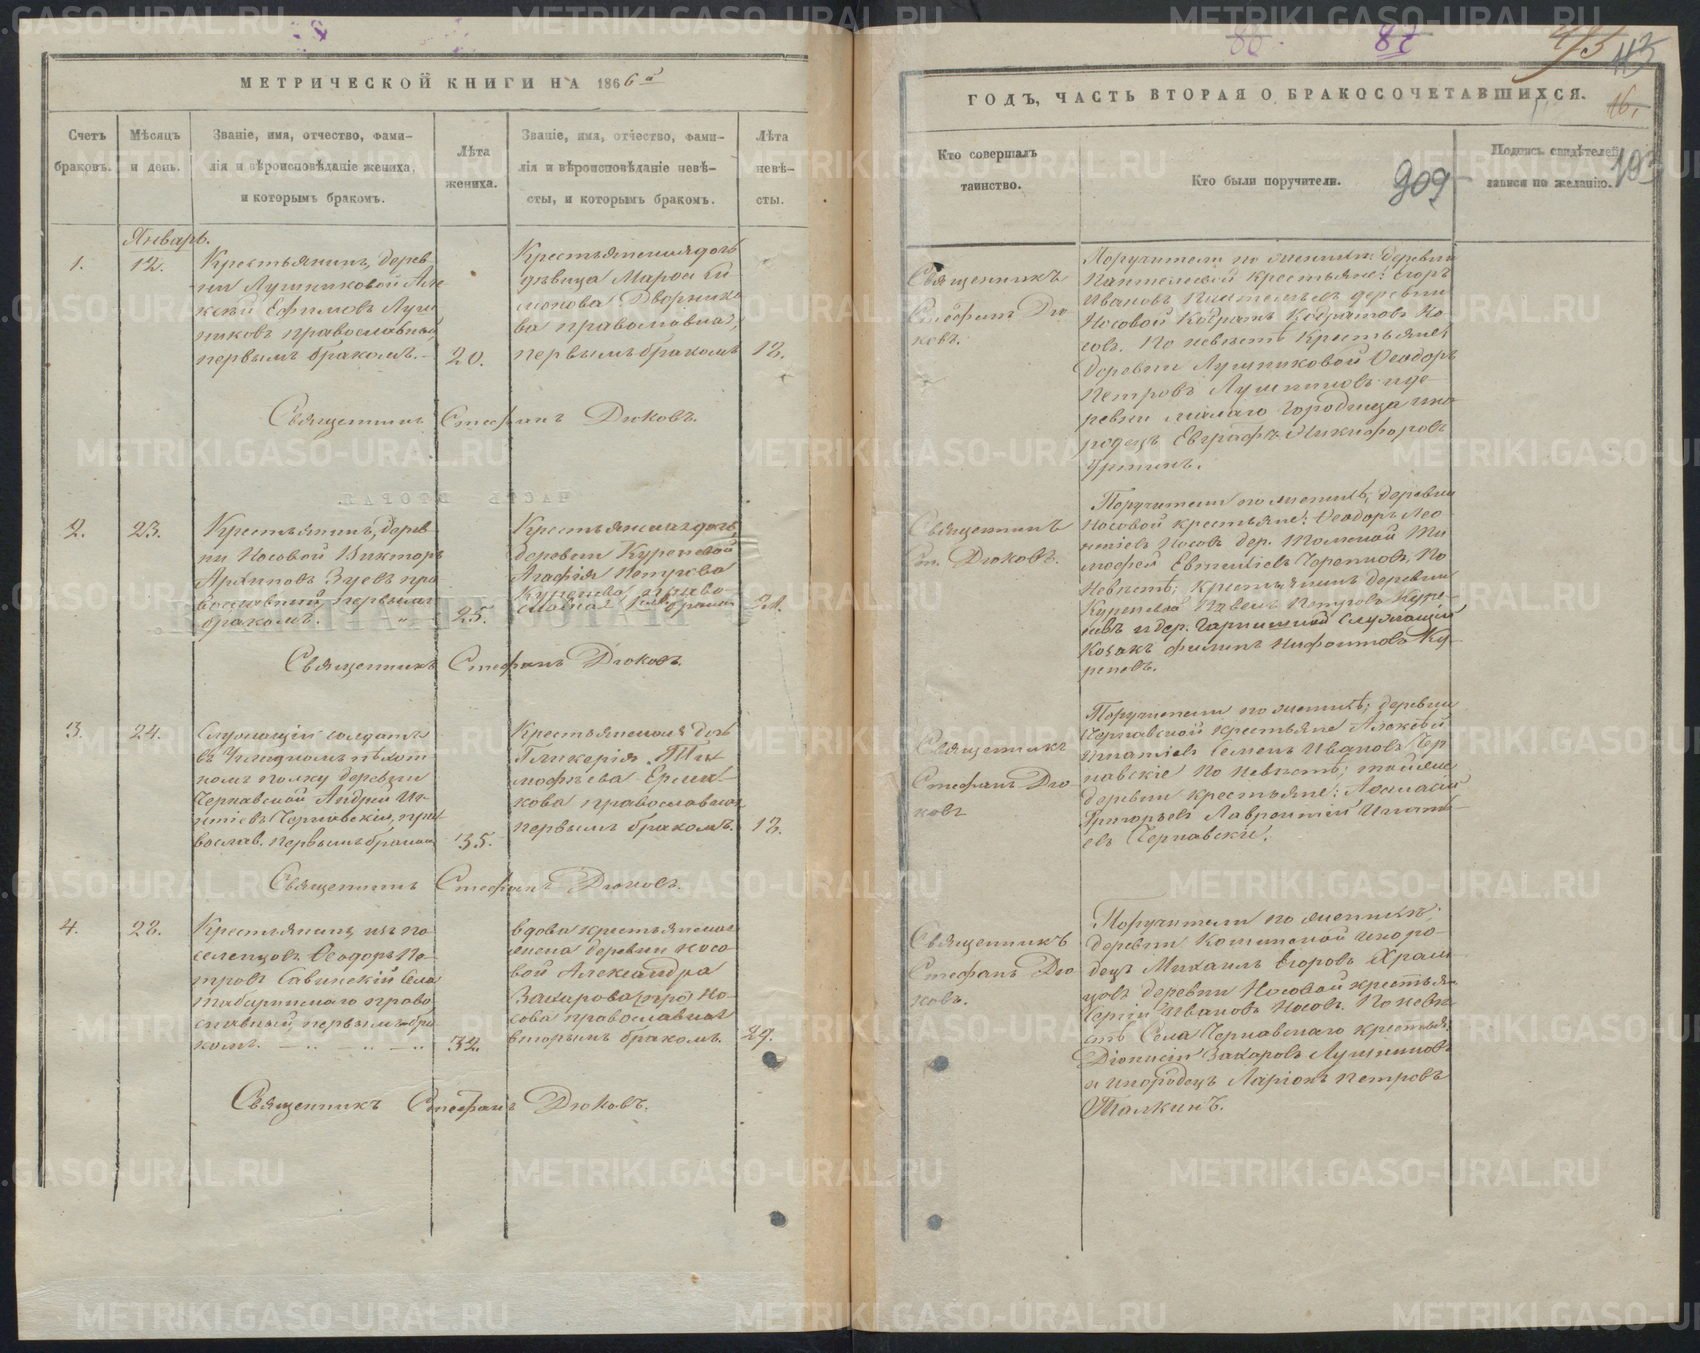 МЕТРИЧЕСКОЙ КНИГИ НА 1866й
Счетъ браковъ.
Мѣсяцъ и день.
Званіе, имя, отчество, фами-
лія и вѣроисповѣданіе жениха,
и которымъ бракомъ.
Лѣта жениха.
Званіе, имя, отчество, фами-
лія и вѣроисповѣданіе невѣ-
сты, и которымъ бракомъ.
Лѣта невѣ-
сты.
Январь.
1.
12.
Крестьянинъ, дерев
ни Лушниковой Але
ксѣй Ефимовъ Луш
никовъ православный
первымъ бракомъ.
20.
Крестьянская дочь
дѣвица Марѳа
Дворнико
ва православная,
первымъ бракомъ
18.
Священникъ Стефанъ Дюковъ.
2.
23.
Крестьянинъ, дерев
ни Носовой Викторъ
Архиповъ Зуевъ пра
вославный, первымъ
бракомъ.
25.
Крестьянская дочь,
деревни Куреневой
Агафія Петрова
Куренева, право
славная бракомъ
21.
Священникъ Стефанъ Дюковъ.
3.
24.
Служащій солдатъ
въ пѣхот
номъ полку деревни
Чернавской Андрей Иг
натіевъ Чернавскій, пра
вослав. первымъ бракомъ
35.
Крестьянская дочь
Гликерія Тим
моѳѣева Ерма
кова православная
первымъ бракомъ.
18.
Священникъ Стефанъ Дюковъ.
4.
28.
Крестьянинъ изъ по
селенцовъ Ѳеодоръ Пе
тровъ Савинскій Села
право
славный, первымъ бра
комъ.
32.
вдова крестьянская
жена деревни Носо
вой Александра
Захарова Но
сова православная
вторымъ бракомъ.
29.
Священникъ Стефанъ Дюковъ.
86
87
113
16.
ГОДЪ, ЧАСТЬ ВТОРАЯ О БРАКОСОЧЕТАВШИХСЯ.
Кто совершалъ
таинство.
Кто были поручители.
909
Подпись свидѣтелей
записи по желанію.
193
Священникъ
Стефанъ Дю
ковъ.
Поручители по женихѣ: деревни
Пантелевой крестьяне: Егоръ
Ивановъ Пантелѣевъ деревни
Носовой Кодратъ Кодратовъ Но
совъ. По невѣстѣ Крестьяне:
деревни Лушниковой Ѳеодоръ
Петровъ Лушниковъ и де-
ревни Малаго Городища ино
родецъ Евграфъ Никифоровъ
Священникъ
Ст. Дюковъ.
Поручители по женихѣ; деревни
Носовой крестьяне: Ѳеодоръ Лео
нтіевъ Носовъ дер. Ти
мофей По
Невѣстѣ; Крестьянинъ деревни
Куреневой Павелъ Петровъ Куре-
невъ и дер. Служащій
Козакъ Филипъ Нифонтовъ Ку-
реневъ.
Священникъ
Стефанъ Дю
ковъ
Поручители по женихѣ; деревни
Чернавской крестьяне Алексѣй
Игнатіевъ Семенъ Ивановъ Чер
навскіе По невѣстѣ; той же
деревни крестьяне: Аѳанасій
Григорьевъ Лаврентій Игнаті
евъ Чернавскіе.
Священникъ
Стефанъ Дю
ковъ.
Поручители по женихѣ;
деревни иноро-
децъ Михаилъ Егоровъ Храм
цовъ деревни Носовой крестьян
Сергій Ивановъ Носовъ. По невѣ
стѣ Села Чернавскаго крестьян
Діонисій Захаровъ Лушниковъ
и инородецъ Ларіонъ Петровъ
METRIKI.GASO-URAL.RU